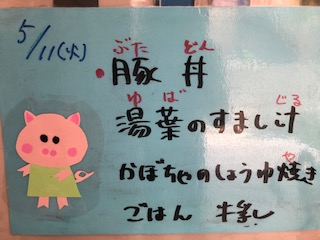 5/11(火)
ぶた どん
・豚 丼
ゆ ば じる
湯葉のすまし汁
や
かぼちゃのしょうゆ焼き
ごはん 牛乳